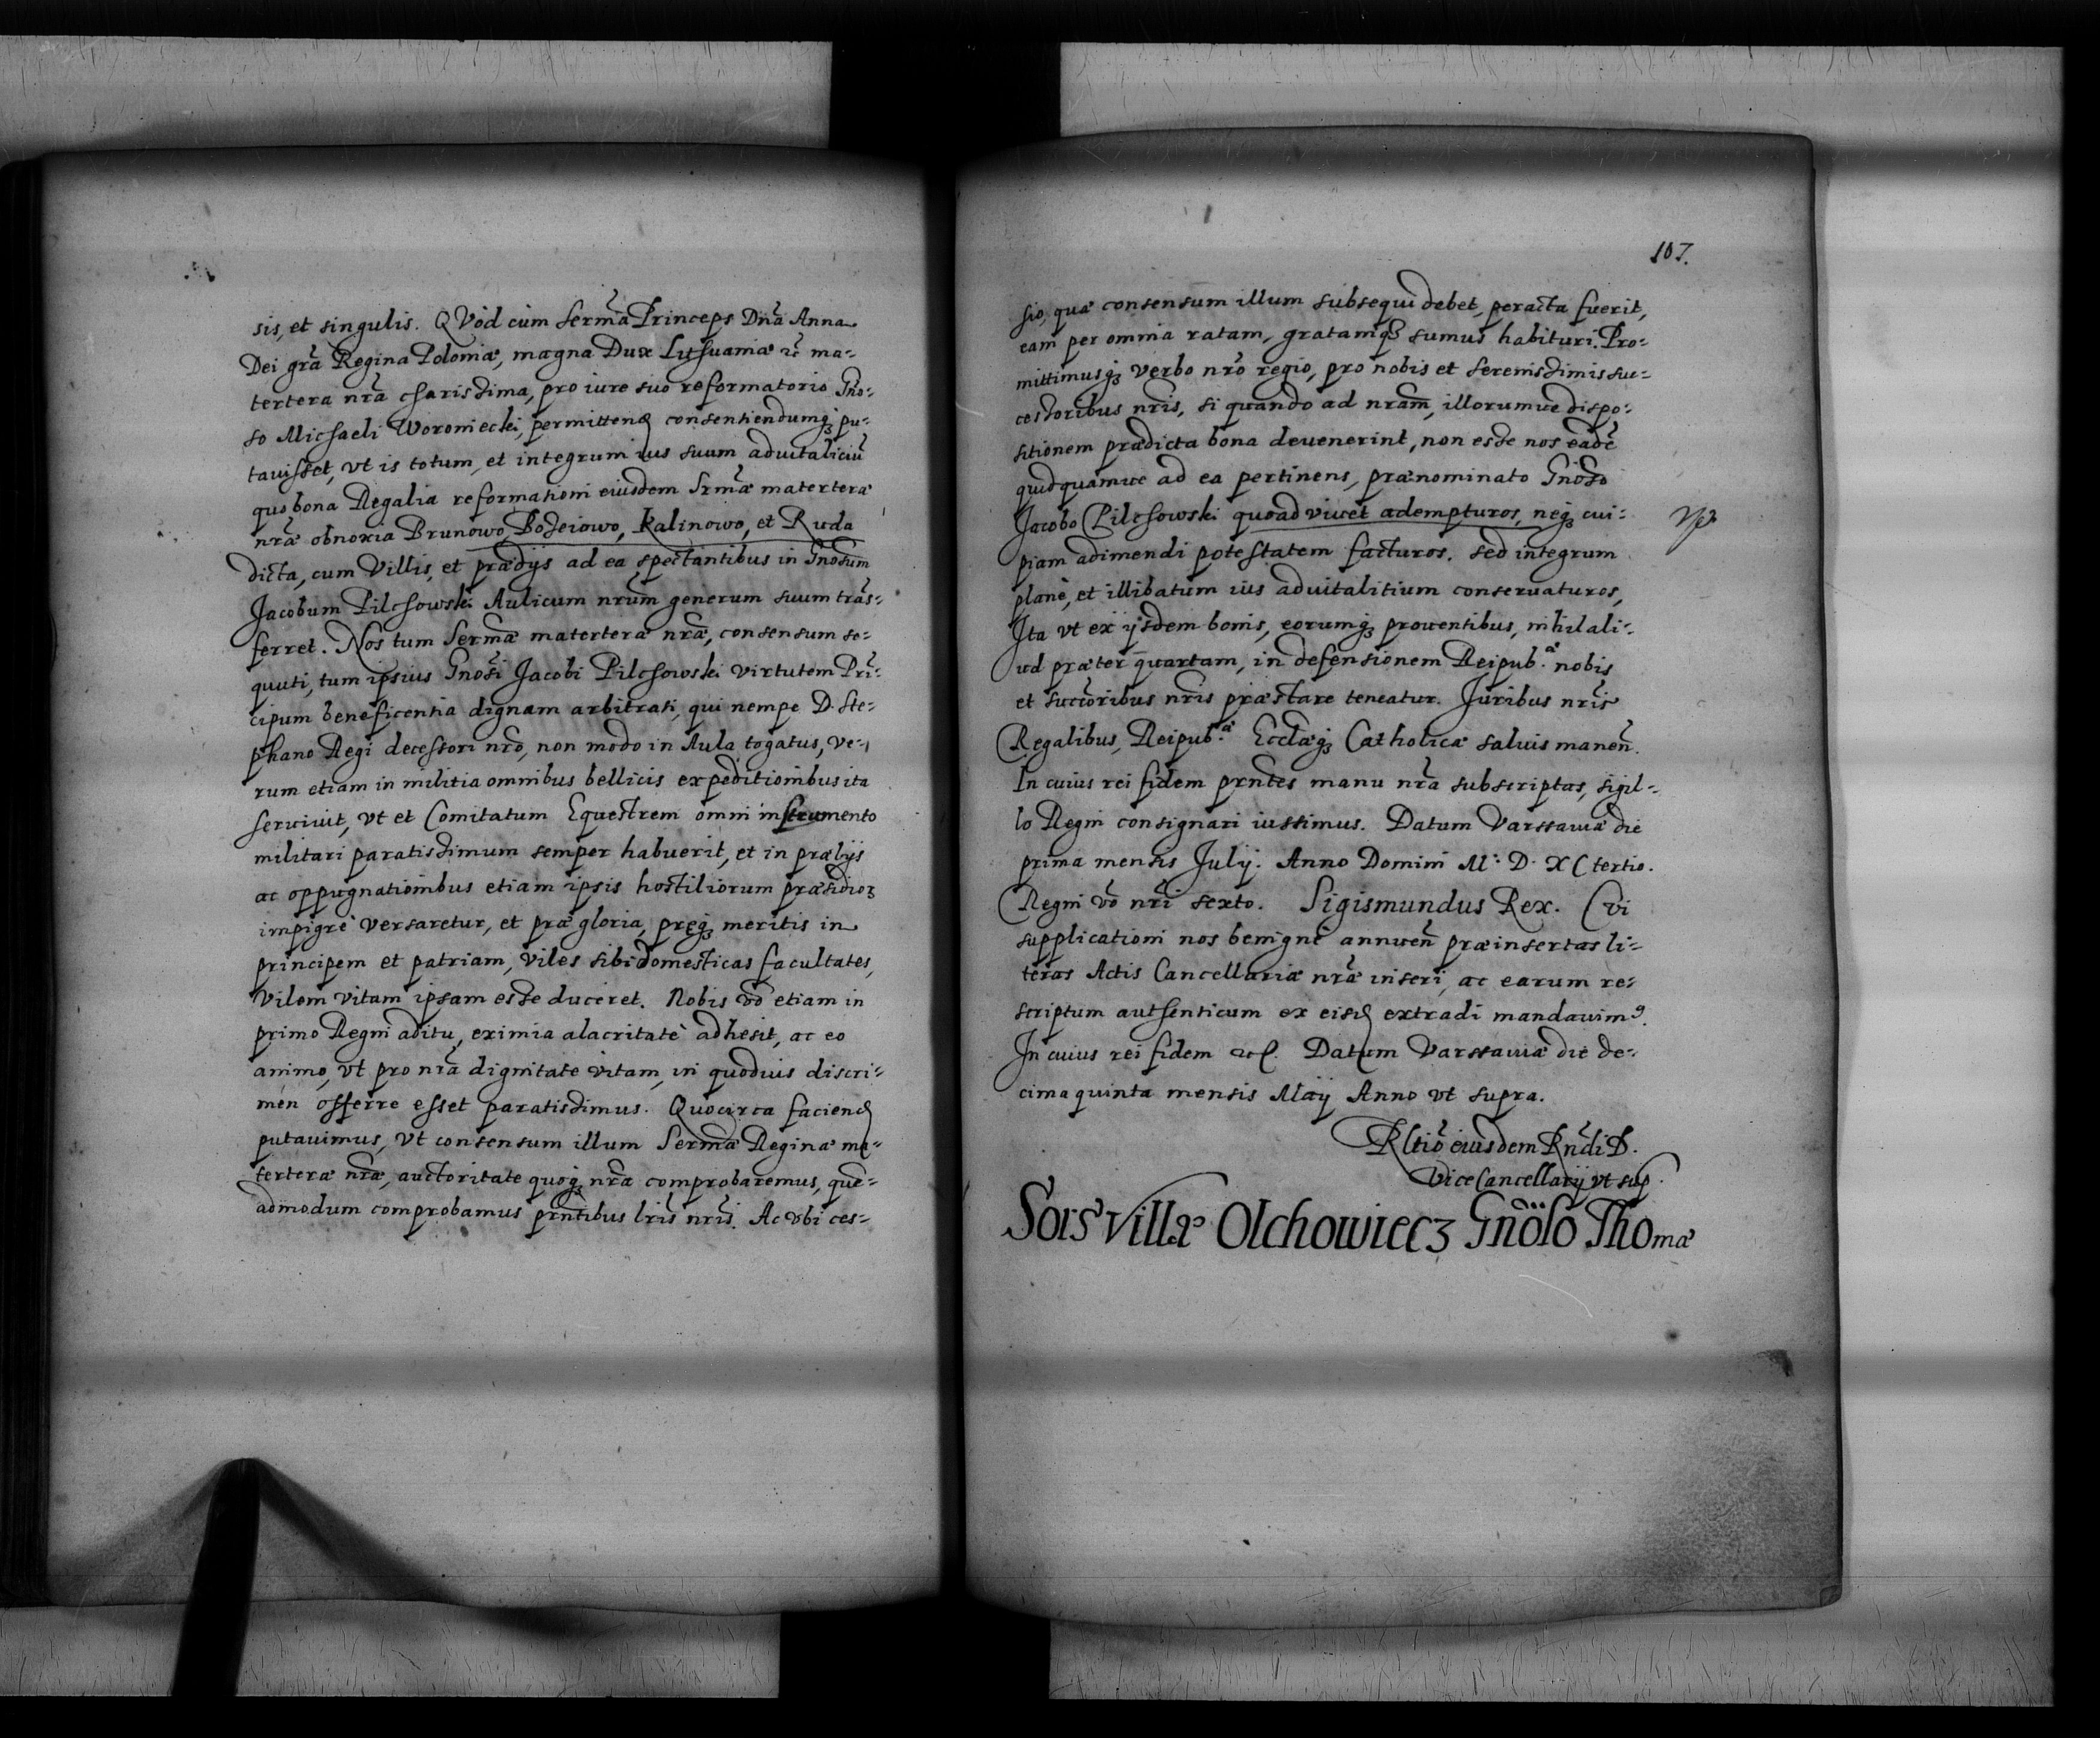 sis, et singulis. QVod cùm Serm̃a Princeps Dña Anna
Dei grã Regina Poloniæ, magna Dux Lithuaniæ ꝛc̃ ma-
tertera nrã charissima, pro iure suo reformatorio Gño-
so Michaeli Woroniecki, permitten̄ consentiendumqȝ pu-
tauisset, vt is totum, et integrum ius suum aduitaliciũ
quo bona Regalia reformationi eiusdem Srm̃æ materteræ
nrẽ obnoxia Brunowo, Bozeiowo, Kalinowo, et Ruda
dicta, cum Villis, et prædijs ad ea spectantibus in Gnosum
Jacobum Pilchowski Aulicum nrũm generum suum trãs-
ferret. Nos tum Serm̃æ materteræ nrẽ, consensum se-
quuti, tum ipsius Gnosi Jacobi Pilchowski virtutem Prĩ-
cipum beneficentia dignam arbitrati, qui nempe D. Ste-
phano Regi decessori nrõ, non modo in Aula togatus, Ve-
rum etiam in militia omnibus bellicis expeditionibus ita
seruiuit, vt et Comitatum Equestrem omni instrumento
militari paratissimum semper habuerit, et in prælijs
ac oppugnationibus etiam ipsis hostiliorum præsidioꝝ
impigrè versaretur, et præ gloria, pręqȝ meritis in
principem et patriam, viles sibi domesticas facultates,
vilem vitam ipsam esse duceret. Nobis võ etiam in
primo Regni aditu, eximia alacritate adhesit, ac eo
animo, vt pro nrã dignitate vitam, in quoduis discri-
men offerre esset paratissimus. Quocirca faciend̄
putauimus, vt consensum illum Serm̃æ Reginæ ma-
terteræ nrẽ, auctoritate quoqȝ nrã comprobaremus, quẽ-
admodum comprobamus prñtibus lrĩs nrĩs. Ac vbi ces-
107.
sio, quæ consensum illum subsequi debet, peracta fuerit,
eam per omnia ratam, gratamqȝ sumus habituri. Pro-
mittimusqȝ verbo nrõ regio, pro nobis et serenissimis suc-
cessoribus nrĩs, si quando ad nrãm, illorumue dispo-
sitionem prædicta bona deuenerint, non esse nos eadẽ
quidquamue ad ea pertinens, prænominato Gnoso
Jacobo Pilchowski quoad viuet adempturos, neqȝ cui-
piam adimendi potestatem facturos. sed integrum
planè, et illibatum ius aduitalitium conseruaturos,
Ita vt ex ijsdem bonis, eorumqȝ prouentibus, nihil ali-
ud præter quartam, in defensionem Reipub.æ nobis
et succõribus nrĩs præstare teneatur. Juribus nrĩs
Regalibus, Reipub.æ Ecclæqȝ Catholicæ saluis manen̄.
In cuius rei fidem prñtes manu nrã subscriptas, sigil-
lo Regni consignari iussimus. Datum Varssauiæ die
prima mensis Julij. Anno Domini M. D. XC tertio.
Regni võ nrĩ sexto. Sigismundus Rex. Cui
supplicationi nos benignè annuen̄ præinsertas li-
teras Actis Cancellariæ nrẽ inseri, ac earum re-
scriptum authenticum ex eisd̄ extradi mandauimꝰ.
In cuius rei fidem ꝛc̃. Datum Varssauiæ die de-
cima quinta mensis Maij Anno vt supra.
Rltiõ eiusdem Rñdi D.
ViceCancellarij vt sup̱.
Sors Villæ Olchowiecz Gnõso Thomæ